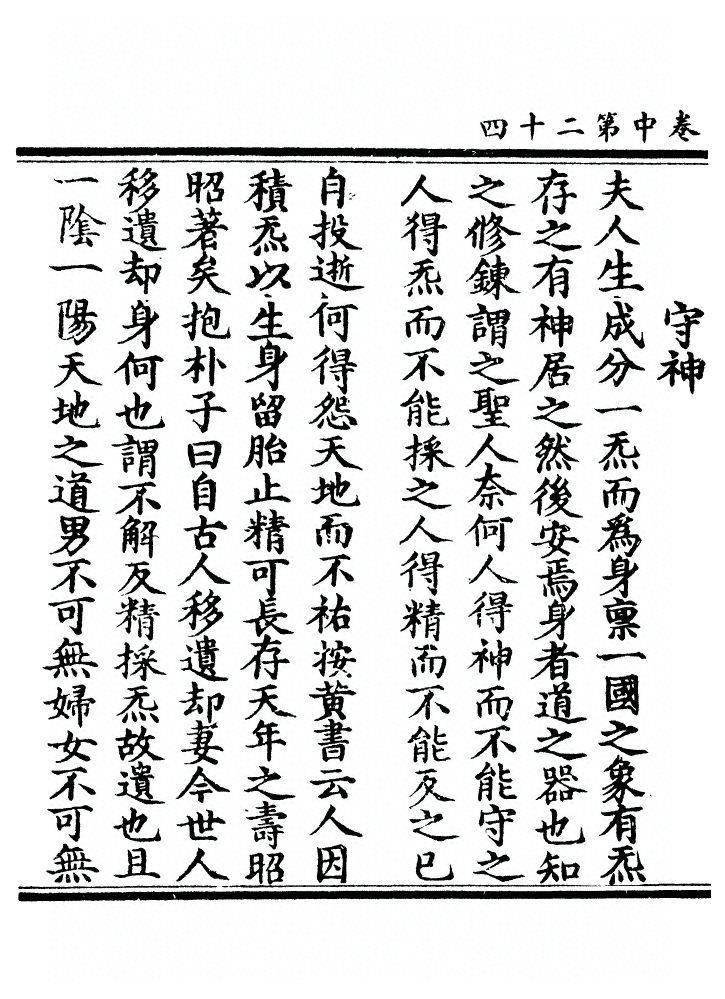 卷中第二十四
守神
夫人生成分一炁而為身禀一國之象有炁
存之有神居之然後安焉身者道之器也知
之修鍊謂之聖人奈何人得神而不能守之
人得炁而不能採之人得精而不能反之已
自投逝何得怨天地而不祐按黄書云人因
積炁以生身留胎止精可長存天年之壽昭
昭著矣抱朴子曰自古人移遺却妻今世人
移遺却身何也謂不解反精採炁故遺也且
一陰一陽天地之道男不可無婦女不可無